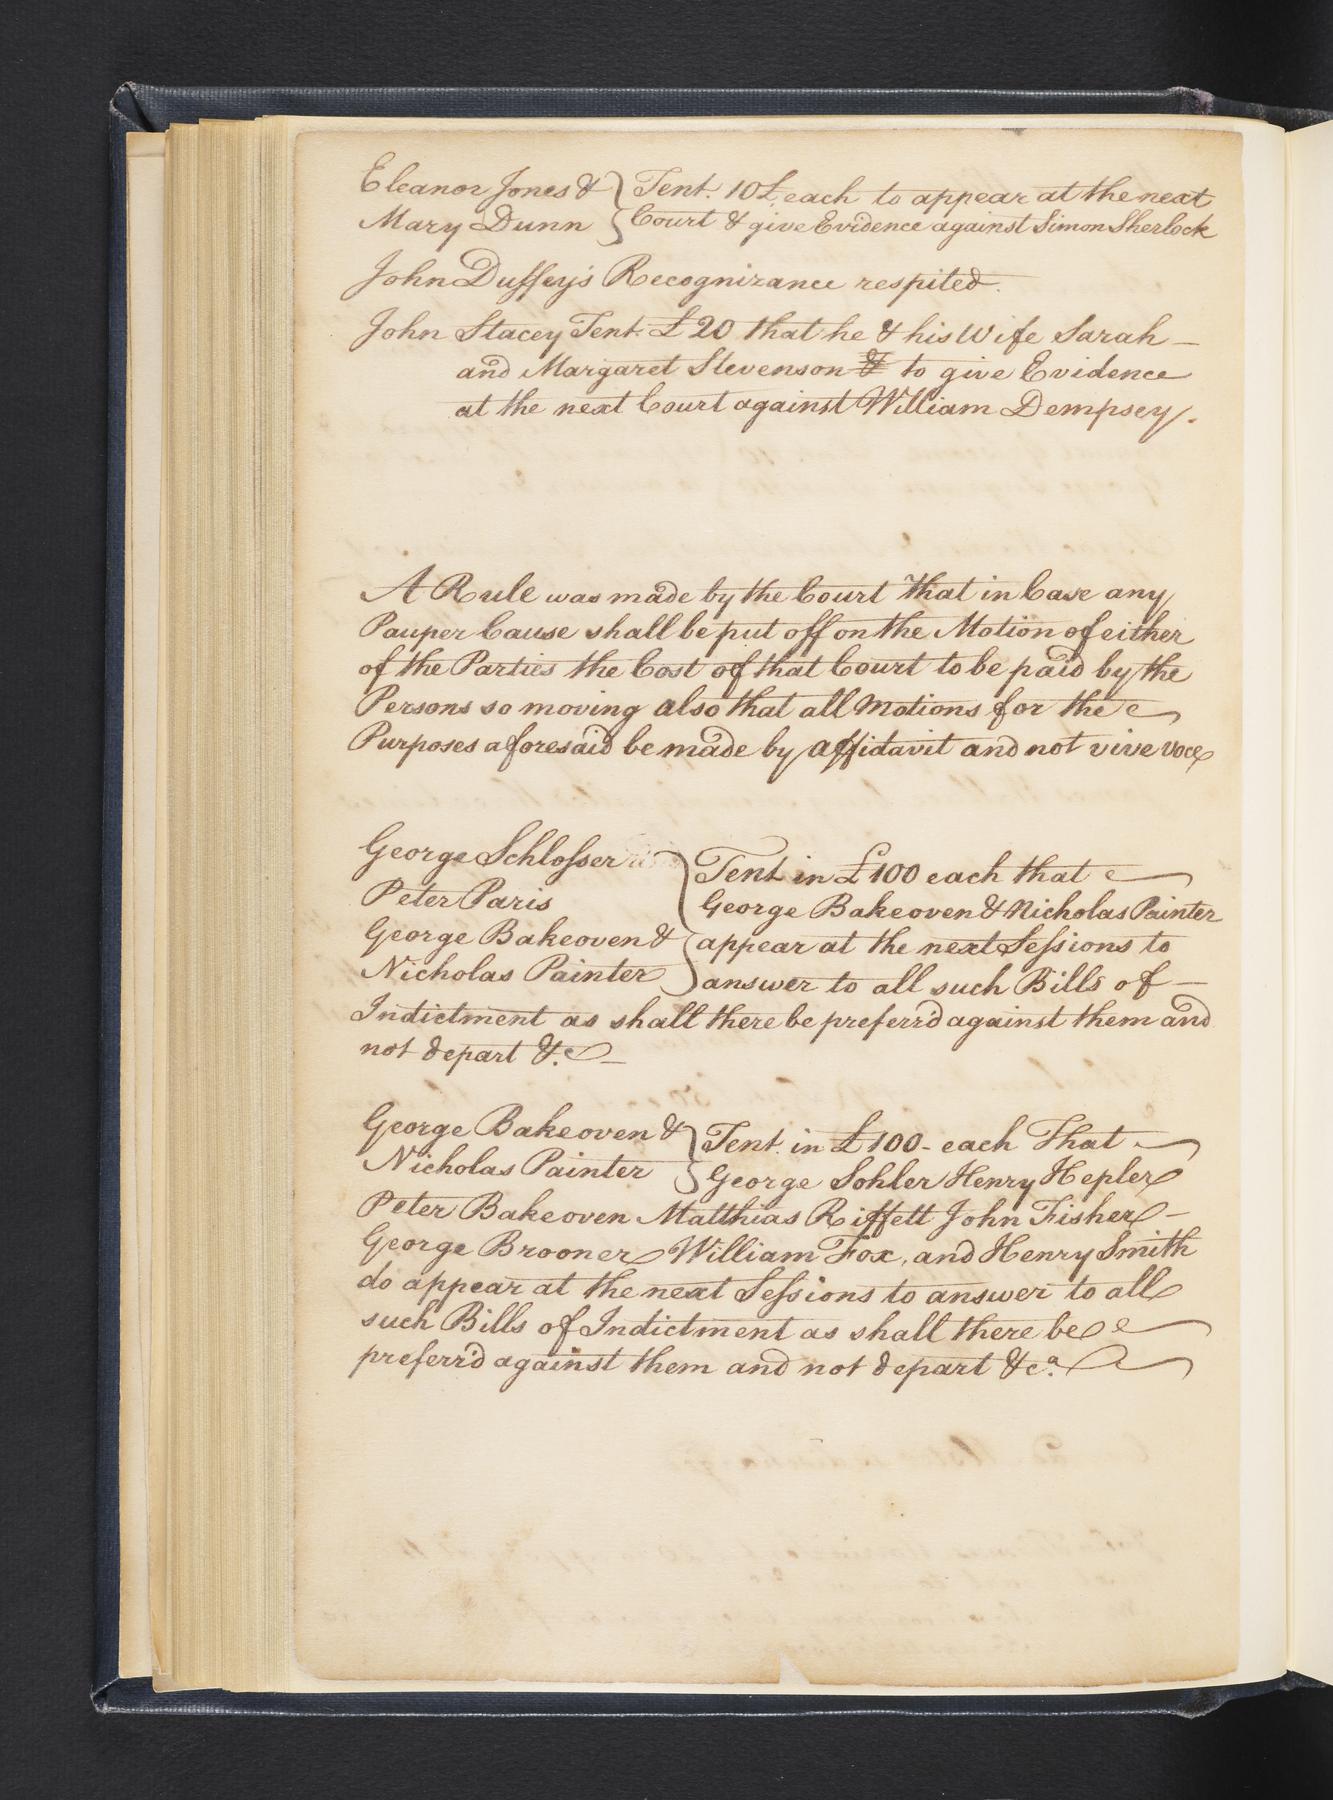 Eleanor Jones & } Tent. 10£ each to appear at the next
Mary Dunn } Court & give Evidence against Simon Sherlock
John Duffey's Recognizance respited.
John Stacey Tent. £20 that he & his Wife Sarah —
and Margaret Stevenson & to give Evidence
at the next Court against William Dempsey.
A Rule was made by the Court that in Case any
Pauper Cause shall be put off on the Motion of either
of the Parties the Cost of that Court to be paid by the
Persons so moving also that all Motions for the
Purposes aforesaid be made by affidavit and not vive voce
George Schlosser } Tent in £100 each that
Peter Paris } George Bakeoven & Nicholas Painter
George Bakeoven & } appear at the next Sessions to
Nicholas Painter } answer to all such Bills of —
Indictment as shall there be preferr'd against them and
not depart &c —
George Bakeoven & } Tent. in £100 - each That
Nicholas Painter } George Sohler Henry Hepler
Peter Bakeoven Matthias Riffett John Fisher —
George Brooner William Fox, and Henry Smith
do appear at the next Sessions to answer to all
such Bills of Indictment as shall there be
preferr'd against them and not depart &ca.